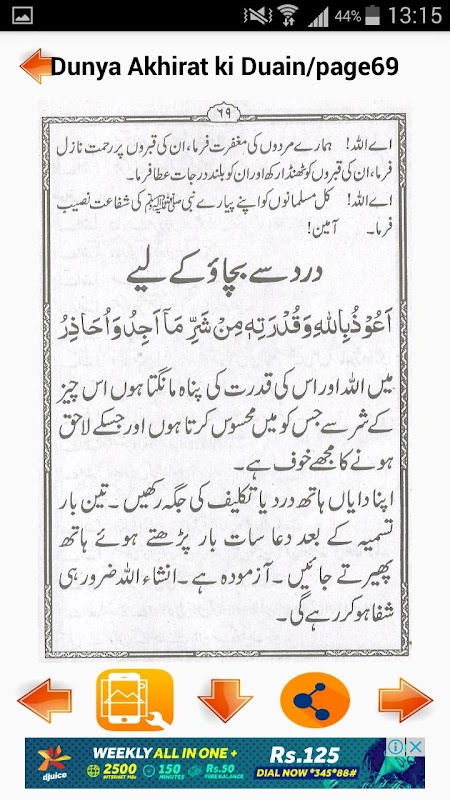 44% 13:15
Dunya Akhirat ki Duain/page69
۶۹
اے اللہ! ہمارے مردوں کی مغفرت فرما، ان کی قبروں پر رحمت نازل
فرما، ان کی قبروں کو ٹھنڈا رکھ اور ان کو بلند درجات عطا فرما۔
اے اللہ! کل مسلمانوں کو اپنے پیارے نبی ﷺ کی شفاعت نصیب
فرما۔ آمین!
درد سے بچاؤ کے لیے
اَعُوْذُ بِاللهِ وَقُدْرَتِهٖ مِنْ شَرِّ مَآ اَجِدُ وَاُحَاذِرُ
میں اللہ اور اس کی قدرت کی پناہ مانگتا ہوں اس چیز
کے شر سے جس کو میں محسوس کرتا ہوں اور جسکے لاحق
ہونے کا مجھے خوف ہے۔
اپنا دایاں ہاتھ درد یا تکلیف کی جگہ رکھیں۔ تین بار
تسمیہ کے بعد دعا سات بار پڑھتے ہوئے ہاتھ
پھیرتے جائیں۔ آزمودہ ہے۔ انشاء اللہ ضرور ہی
شفا ہو کر رہے گی۔
djuice
WEEKLY ALL IN ONE +
2500 INTERNET MBs
150 MINUTES
Rs.50 FREE BALANCE
Rs.125
DIAL NOW *345*88#